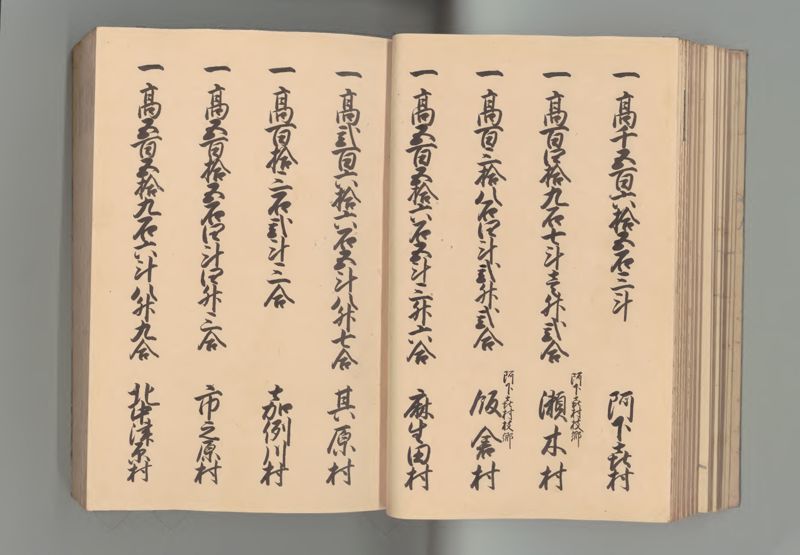 一 髙千五百六拾五石三斗 阿下喜村
一 髙百四拾九石七斗壱升弐合 阿下喜村枝郷 瀬木村
一 髙百三拾八石四斗弐升弐合 阿下喜村枝郷 飯倉村
一 髙五百五拾六石五斗三升六合 麻生田村
一 髙弐百六拾六石五斗八升七合 其原村
一 髙百拾三石弐斗三合 嘉例川村
一 髙五百拾五石四斗四升三合 市之原村
一 髙五百五拾九石六斗八升九合 北中津原村